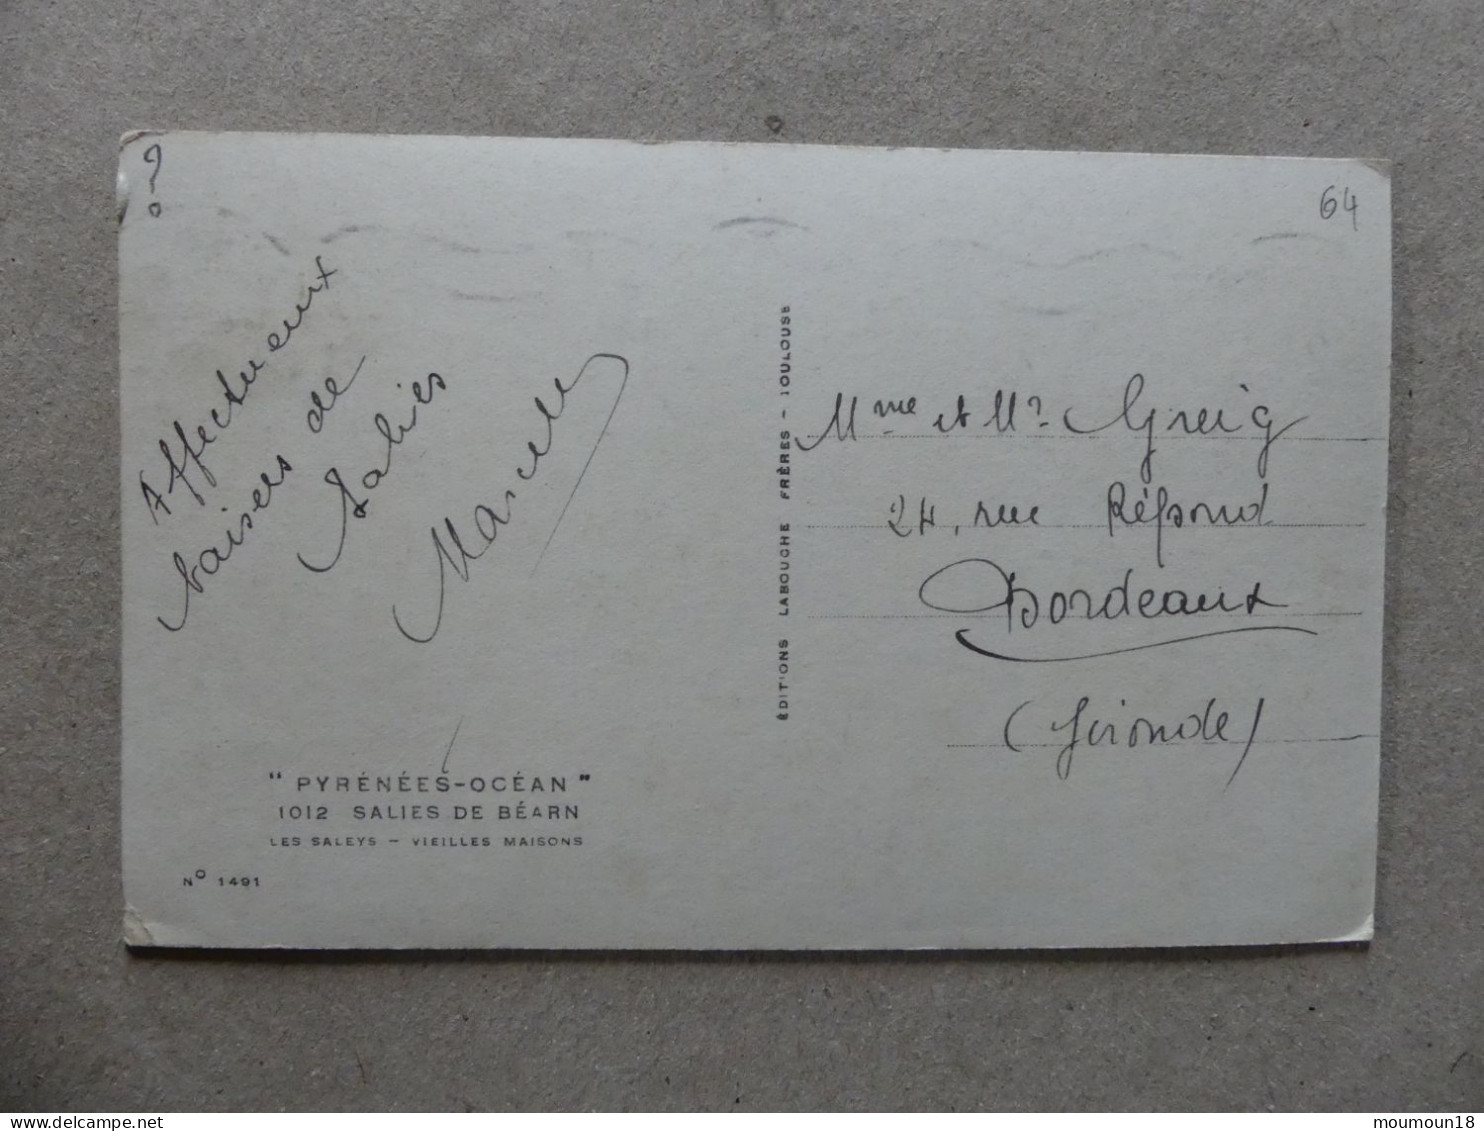 ?
64
Affectueux
baisers de
Salies
Marcelle
Mme et Mr Greig
24, rue Répond
Bordeaux
(Gironde)
ÉDITIONS LABOUCHE FRÈRES - TOULOUSE
" PYRÉNÉES-OCÉAN "
1012 SALIES DE BÉARN
LES SALEYS - VIEILLES MAISONS
No 1491
moumoun18